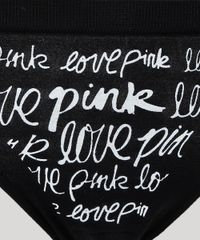 pink love pink lo
ve pink lo
k love pin
ve pink lo
love pin